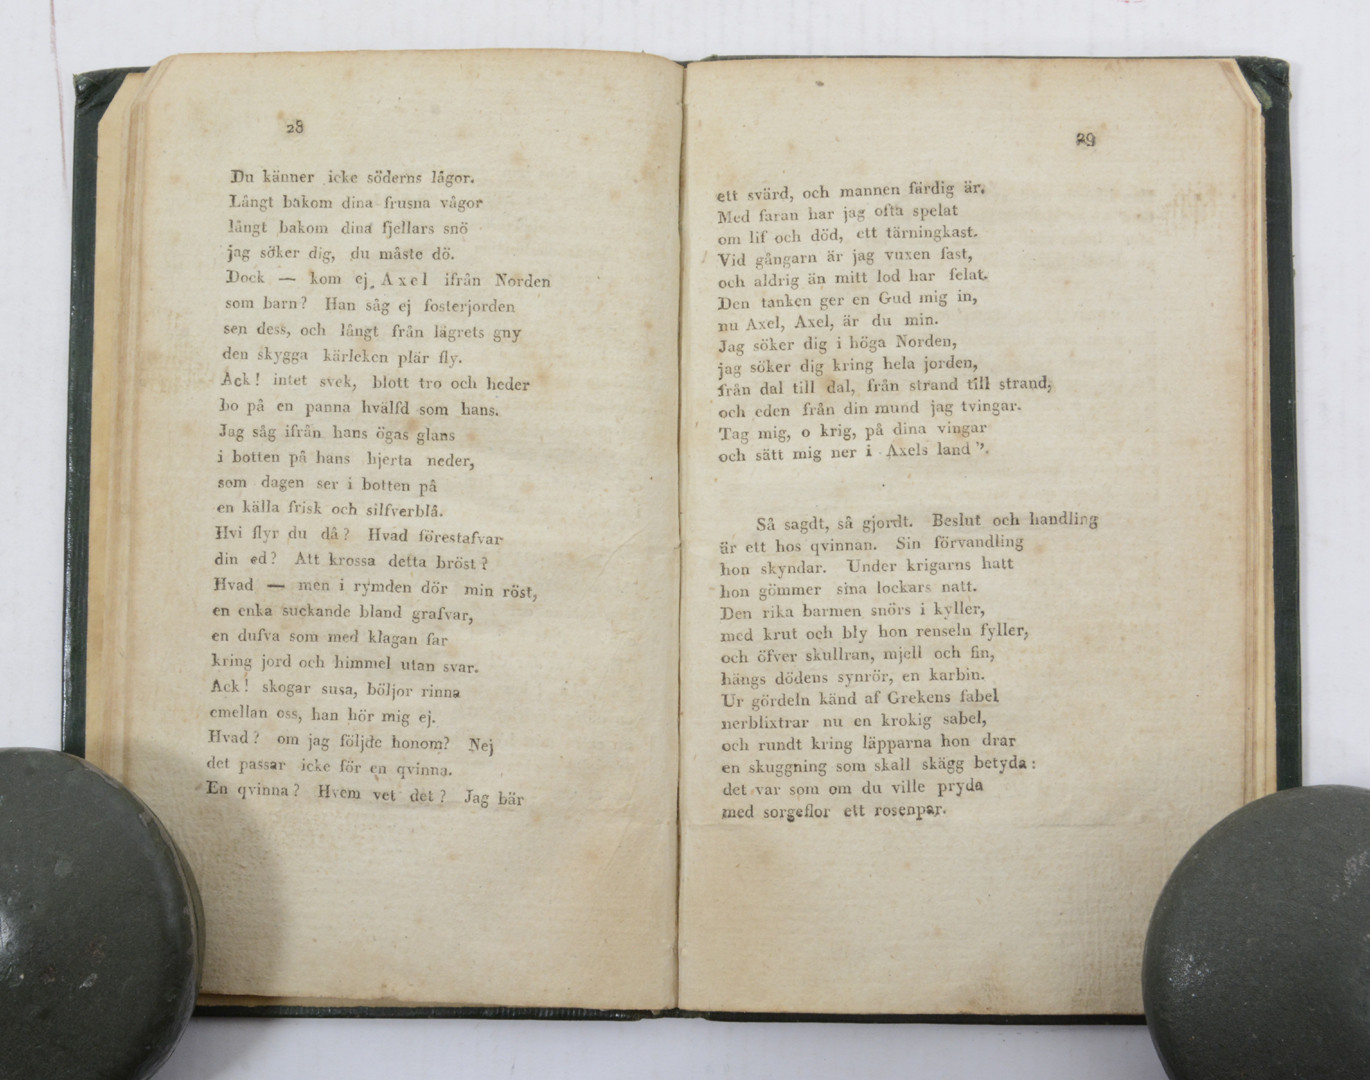 28
Du känner icke söderns lågor.
Långt bakom dina frusna vågor
långt bakom dina fjellars snö
jag söker dig, du måste dö.
Dock — kom ej, Axel ifrån Norden
som barn? Han såg ej fosterjorden
sen dess, och långt från lägrets gny
den skygga kärleken plär fly.
Ack! intet svek, blott tro och heder
bo på en panna hvälfd som hans.
Jag såg ifrån hans ögas glans
i botten på hans hjerta neder,
som dagen ser i botten på
en källa frisk och silfverblå.
Hvi flyr du då? Hvad förestafvar
din ed? Att krossa detta bröst?
Hvad — men i rymden dör min röst,
en enka suckande bland grafvar,
en dufva som med klagan far
kring jord och himmel utan svar.
Ack! skogar susa, böljor rinna
emellan oss, han hör mig ej.
Hvad? om jag följde honom? Nej
det passar icke för en qvinna.
En qvinna? Hvem vet det? Jag bär
29
ett svärd, och mannen färdig är.
Med faran har jag ofta spelat
om lif och död, ett tärningkast.
Vid gångarn är jag vuxen fast,
och aldrig än mitt lod har felat.
Den tanken ger en Gud mig in,
nu Axel, Axel, är du min.
Jag söker dig i höga Norden,
jag söker dig kring hela jorden,
från dal till dal, från strand till strand,
och eden från din mund jag tvingar.
Tag mig, o krig, på dina vingar
och sätt mig ner i Axels land”.
Så sagdt, så gjordt. Beslut och handling
är ett hos qvinnan. Sin förvandling
hon skyndar. Under krigarns hatt
hon gömmer sina lockars natt.
Den rika barmen snörs i kyller,
med krut och bly hon renseln fyller,
och öfver skullran, mjell och fin,
hängs dödens synrör, en karbin.
Ur gördeln känd af Grekens fabel
nerblixtrar nu en krokig sabel,
och rundt kring läpparna hon drar
en skuggning som skall skägg betyda:
det var som om du ville pryda
med sorgeflor ett rosenpar.